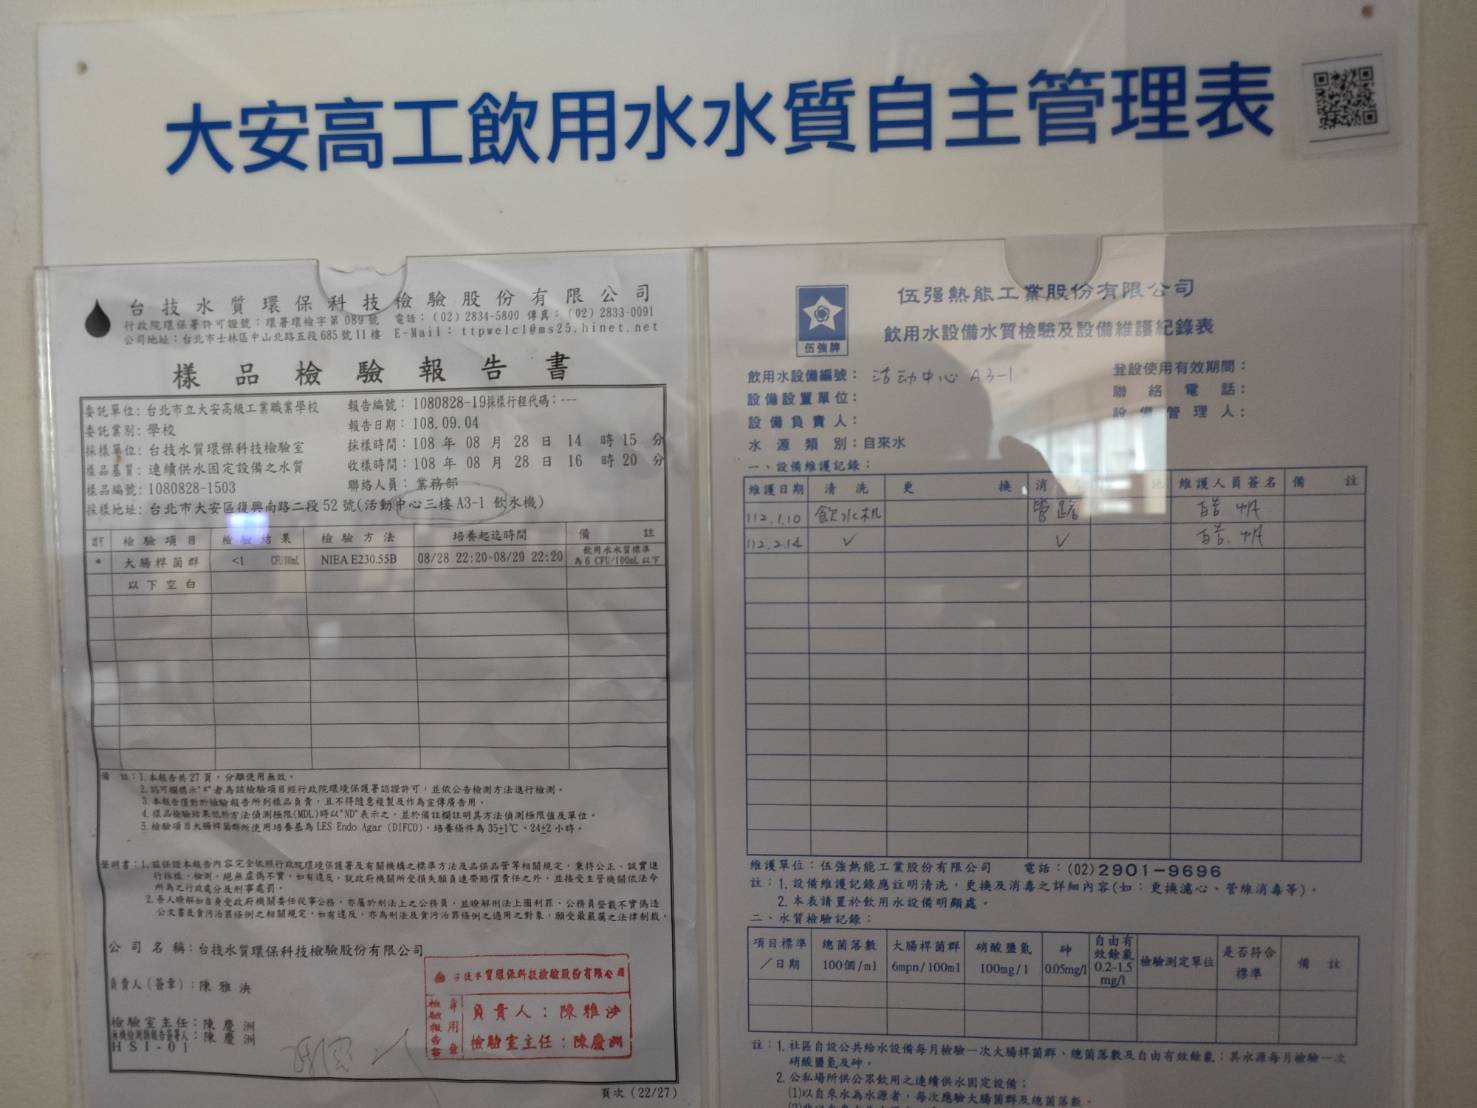 大安高工飲用水水質自主管理表
台技水質環保科技檢驗股份有限公司
行政院環保署許可證號：環署環檢字第089號 電話：(02)2834-5800 傳真：(02)2833-0091
公司地址：台北市士林區中山北路五段685號11樓 E-Mail：ttpwelcl@ms25.hinet.net
樣品檢驗報告書
委託單位：台北市立大安高級工業職業學校 報告編號：1080828-19採樣行程代碼：---
委託業別：學校 報告日期：108.09.04
採樣單位：台技水質環保科技檢驗室 採樣時間：108 年 08 月 28 日 14 時 15 分
樣品基質：連續供水固定設備之水質 收樣時間：108 年 08 月 28 日 16 時 20 分
樣品編號：1080828-1503 聯絡人員：業務部
採樣地址：台北市大安區復興南路二段52號(活動中心三樓 A3-1 飲水機)
檢驗項目 檢驗結果 檢驗方法 培養起迄時間 備註
* 大腸桿菌群 <1 CFU/100mL NIEA E230.55B 08/28 22:20~08/29 22:20 飲用水水質標準
為6 CFU/100mL以下
以下空白
備 註：1.本報告共27頁，分離使用無效。
2.認可欄標示"*"者為該檢驗項目經行政院環境保護署認證許可，並依公告檢測方法進行檢測。
3.本報告僅對於檢驗報告所列樣品負責，且不得隨意複製及作為宣傳廣告用。
4.樣品檢驗結果低於方法偵測極限(MDL)時以"ND"表示之，並於備註欄註明其方法偵測極限值及單位。
5.檢驗項目大腸桿菌群所使用培養基為LES Endo Agar (DIFCO)，培養條件為35±1℃、24±2小時。
聲明書：1.茲保證本報告內容完全依照行政院環境保護署及有關機構之標準方法及品保品管等相關規定，秉持公正、誠實進
行採樣、檢測。絕無虛偽不實，如有違反，就政府機關所受損失願負連帶賠償責任之外，並接受主管機關依法令
所為之行政處分及刑事處罰。
2.吾人瞭解如自身受政府機關委任從事公務，亦屬於刑法上之公務員，並瞭解刑法上圖利罪、公務員登載不實偽造
公文書及貪污治罪條例之相關規定，如有違反，亦為刑法及貪污治罪條例之適用之對象，願受最嚴厲之法律制裁。
公司名稱：台技水質環保科技檢驗股份有限公司
負責人(簽章)：陳雅泱
檢驗室主任：陳慶洲
無機檢測類報告簽署人：陳慶洲
HSI-01
台技水質環保科技檢驗股份有限公司
檢驗報告書專用章
負責人：陳雅泱
檢驗室主任：陳慶洲
頁次 (22/27)
伍強牌
伍強熱能工業股份有限公司
飲用水設備水質檢驗及設備維護紀錄表
飲用水設備編號：活动中心 A3-1 登設使用有效期間：
設備設置單位： 聯絡電話：
設備負責人： 設備管理人：
水源類別：自來水
一、設備維護記錄：
維護日期 清洗 更換 消 維護人員簽名 備註
112.1.10 飲水机 管路
112.2.14 ✓ ✓
維護單位：伍強熱能工業股份有限公司 電話：(02)2901-9696
註：1.設備維護記錄應註明清洗，更換及消毒之詳細內容(如：更換濾心、管維消毒等)。
2.本表請置於飲用水設備明顯處。
二、水質檢驗記錄：
項目標準／日期 總菌落數 100個/ml 大腸桿菌群 6mpn/100ml 硝酸鹽氮 100mg/l 砷 0.05mg/l 自由有效餘氯 0.2-1.5 mg/l 檢驗測定單位 是否符合標準 備註
註：1.社區自設公共給水設備每月檢驗一次大腸桿菌群、總菌落數及自由有效餘氯；其水源每月檢驗一次
硝酸鹽氮及砷。
2.公私場所供公眾飲用之連續供水固定設備：
(1)以自來水為水源者，每次應驗大腸菌群及總菌落數。